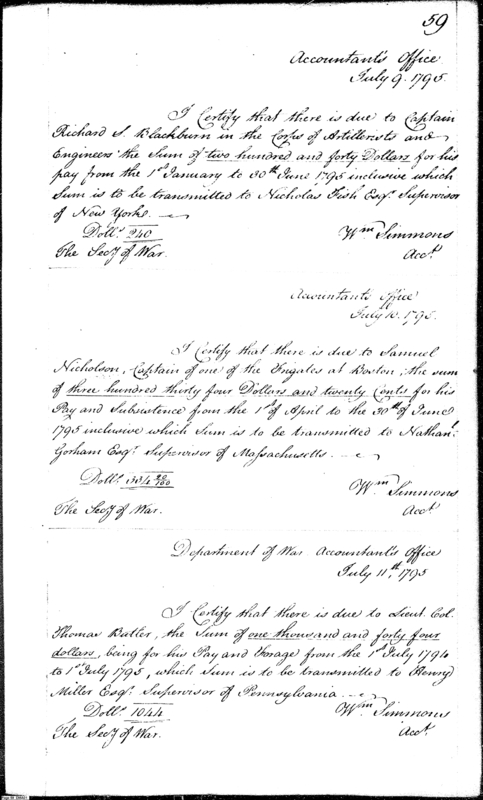 59
Accountant's Office
July 9. 1795.
I Certify that there is due to Captain
Richard S. Blackburn in the Corps of Artillerists and
Engineers the Sum of two hundred and forty Dollars for his
pay from the 1st January to 30th June 1795 inclusive which
Sum is to be transmitted to Nicholas Fish Esqr. Supervisor
of New York.
Dolls. 240
Wm Simmons
The Secy of War.
Acct.
Accountant's Office
July 10. 1795.
I Certify that there is due to Samuel
Nicholson, Captain of one of the Frigates at Boston, the sum
of three hundred thirty four Dollars and twenty Cents for his
Pay and Subsistence from the 1st of April to the 30th of June
1795 inclusive which Sum is to be transmitted to Nathanl.
Gorham Esqr. Supervisor of Massachusetts.
Dolls. 334 20/100
Wm. Simmons
The Secy of War.
Acct.
Department of War Accountant's Office
July 11th, 1795
I Certify that there is due to Lieut. Col.
Thomas Butler, the Sum of one thousand and forty four
dollars, being for his Pay and Forage from the 1st July 1794
to 1st July 1795, which Sum is to be transmitted to Henry
Miller Esqr. Supervisor of Pennsylvania.
Dolls. 1044
Wm Simmons
The Secy of War.
Acct.